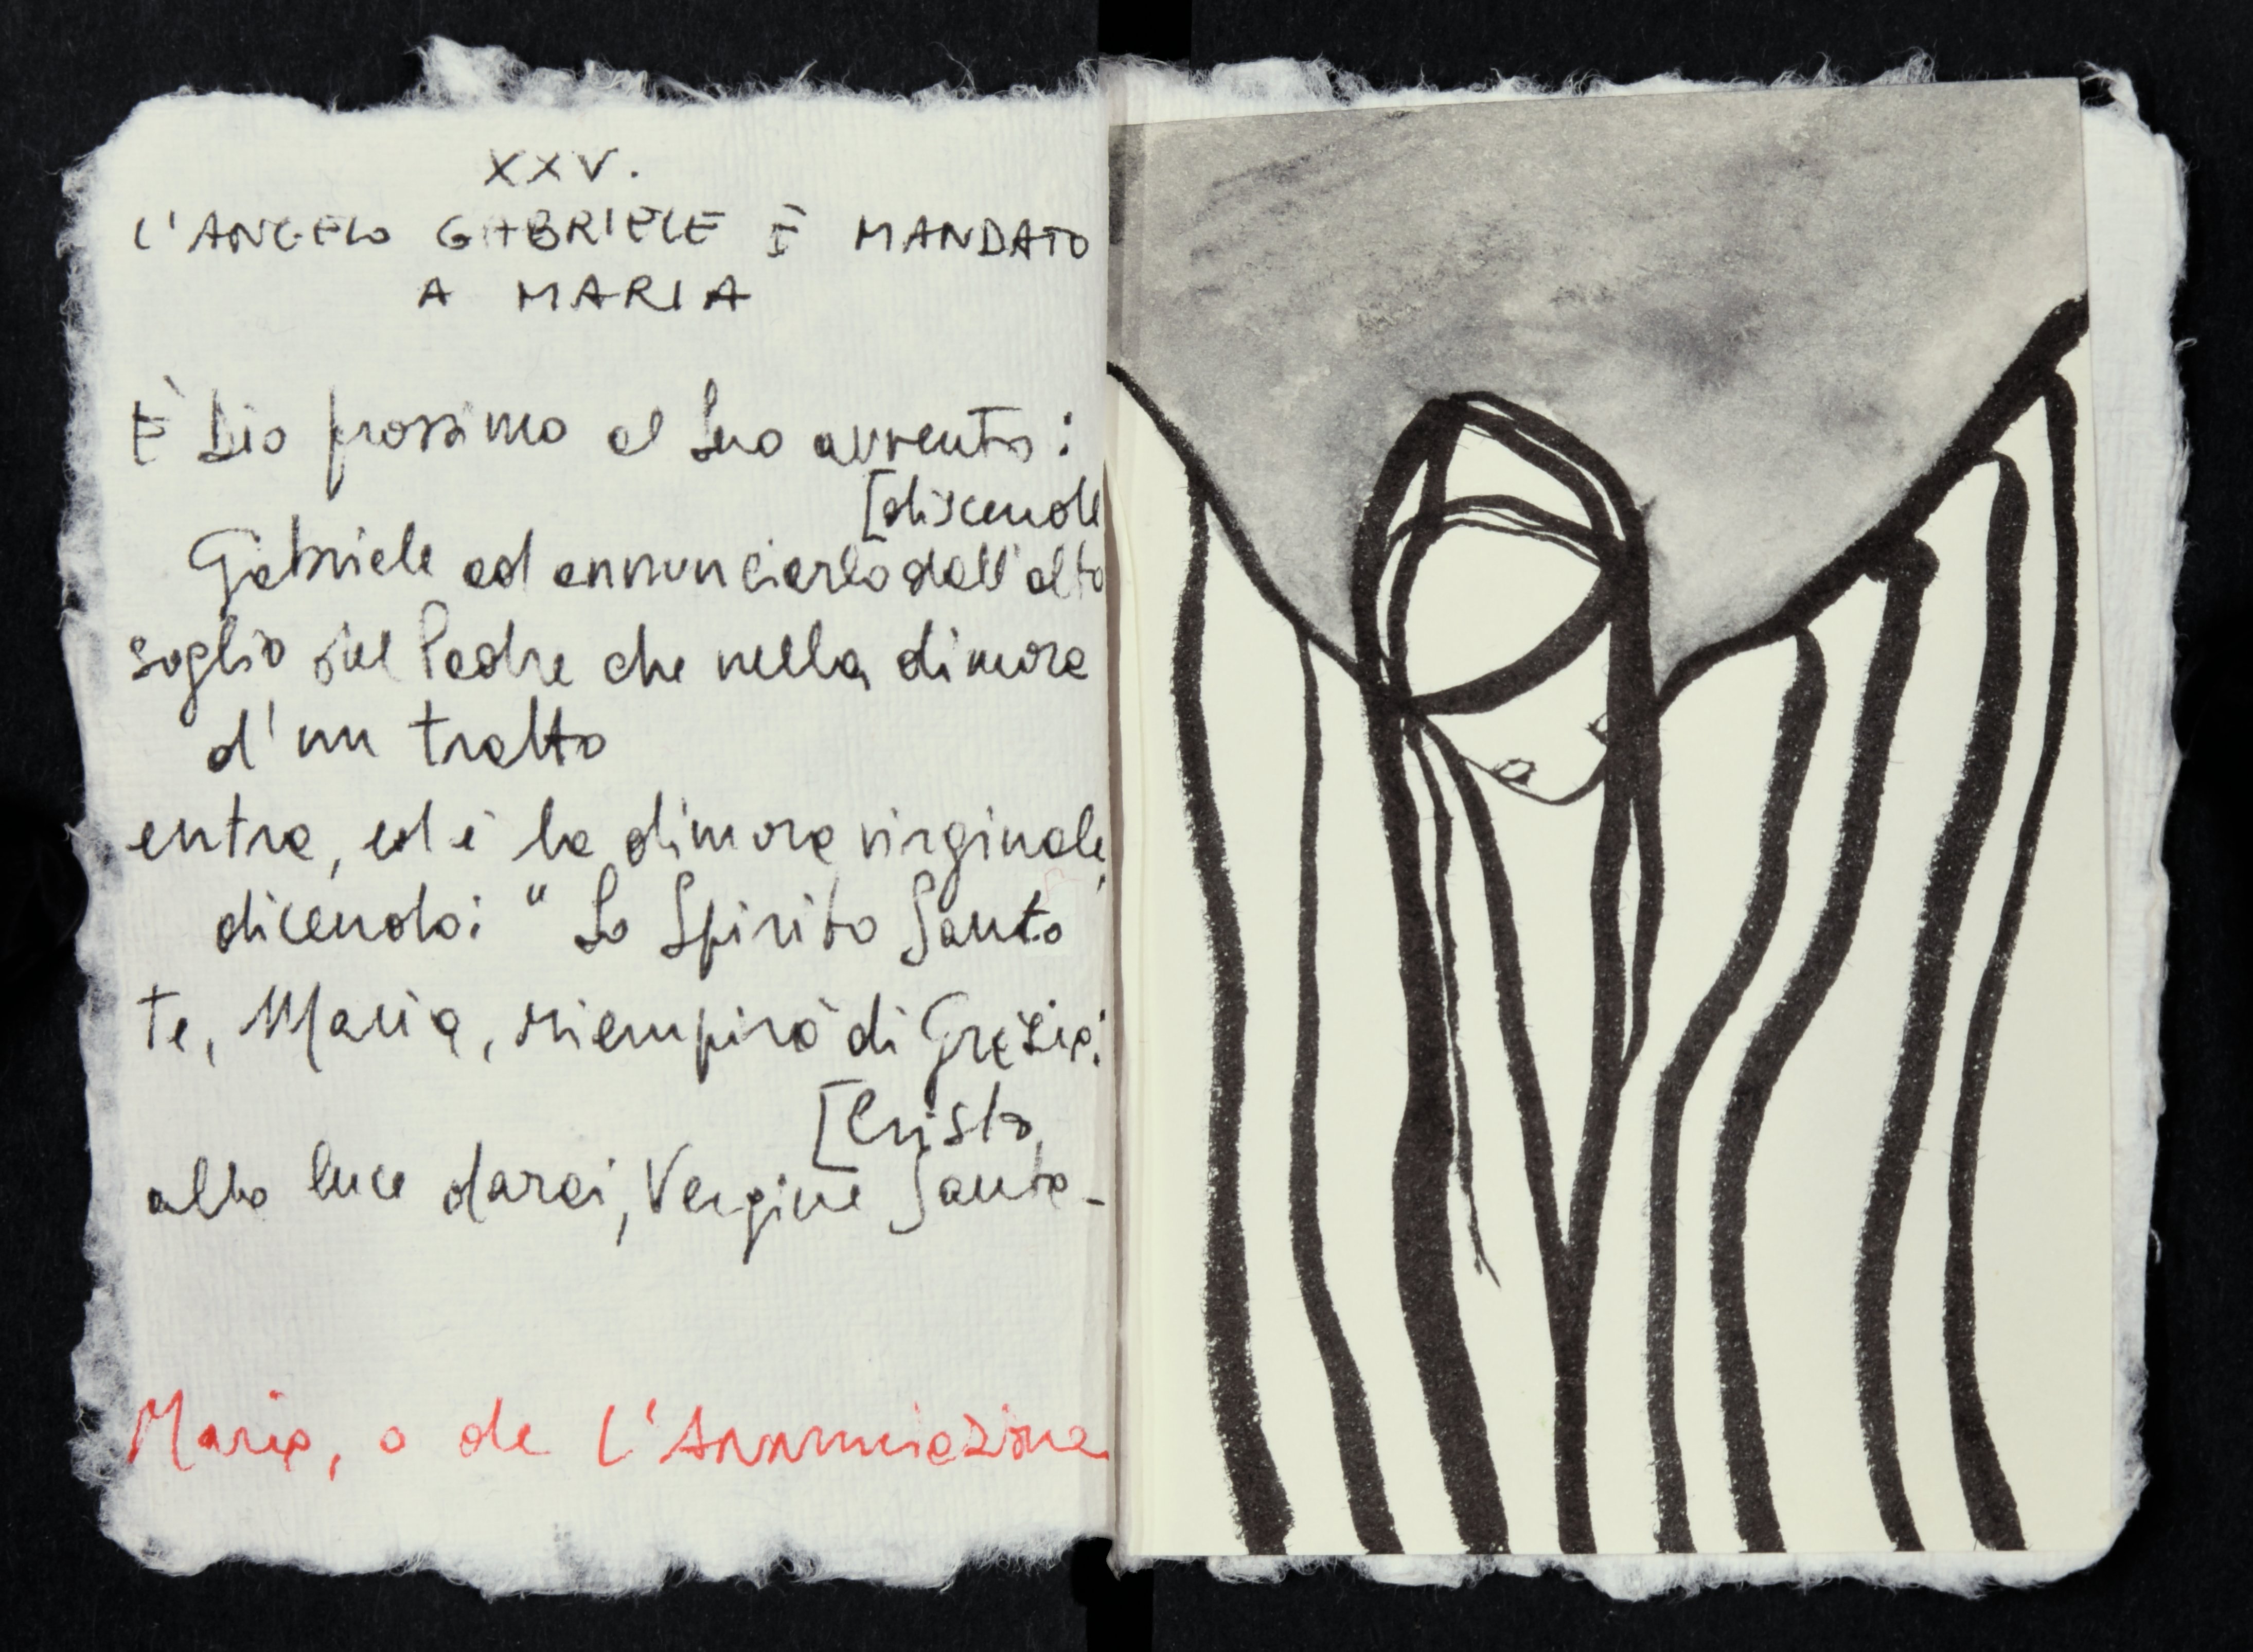 XXV.
L'ANGELO GABRIELE È MANDATO
A MARIA
È Dio prossimo al Suo avvento:
[discende
Gabriele ad annunciarlo dall'alto
soglio del Padre che nella dimora
d'un tratto
entra, ed è la dimora virginale,
dicendo: "Lo Spirito Santo
te, Maria, riempirà di Grazia:
[Cristo
alla luce darai, Vergine Santa-
Maria, o de l'Annunciazione